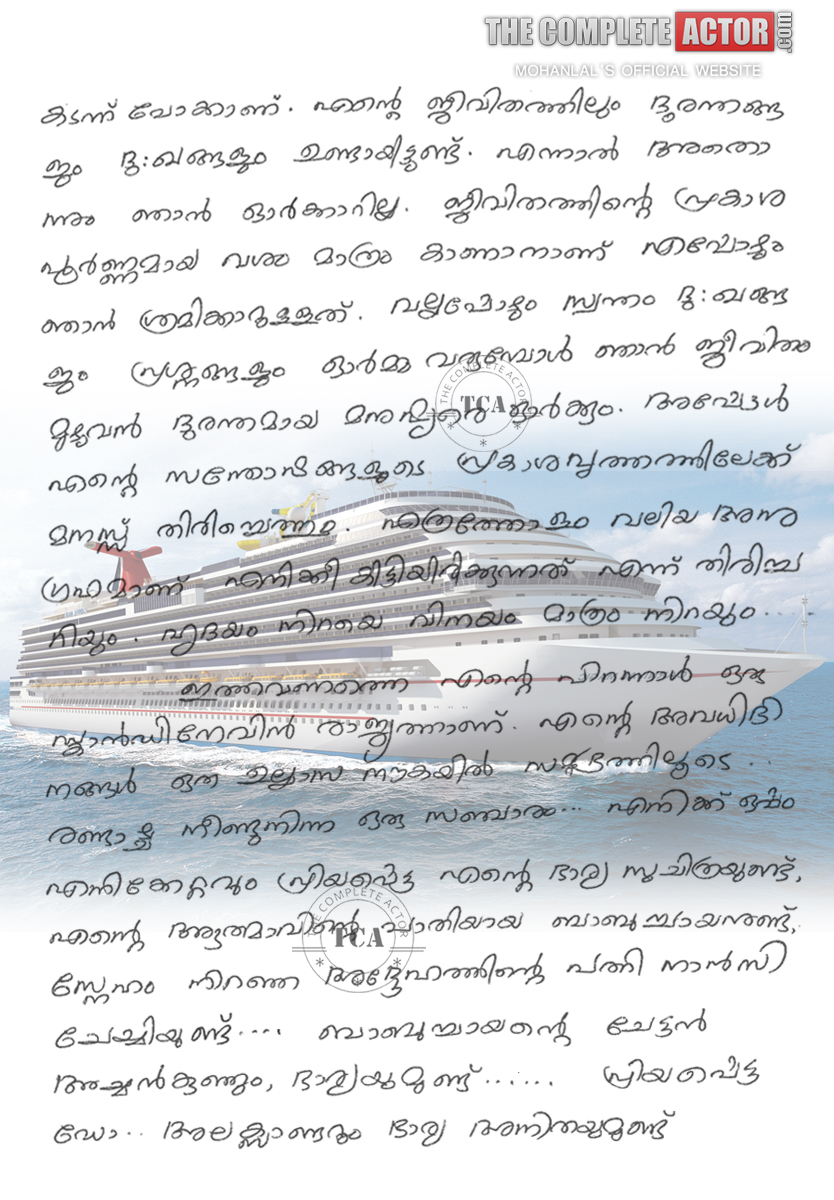 THE COMPLETE ACTOR.com
MOHANLAL'S OFFICIAL WEBSITE
കടന്ന് പോക്കാണ്. എന്റെ ജീവിതത്തിലും ദുരന്തങ്ങ
ളും ദു:ഖങ്ങളും ഉണ്ടായിട്ടുണ്ട്. എന്നാൽ അതൊ
ന്നും ഞാൻ ഓർക്കാറില്ല. ജീവിതത്തിന്റെ പ്രകാശ
പൂർണ്ണമായ വശം മാത്രം കാണാനാണ് എപ്പോഴും
ഞാൻ ശ്രമിക്കാറുള്ളത്. വല്ലപ്പോഴും സ്വന്തം ദു:ഖങ്ങ
ളും പ്രശ്നങ്ങളും ഓർമ്മ വരുമ്പോൾ ഞാൻ ജീവിതം
മുഴുവൻ ദുരന്തമായ മനുഷ്യരെ ഓർക്കും. അപ്പോൾ
എന്റെ സന്തോഷങ്ങളുടെ പ്രകാശവൃത്തത്തിലേക്ക്
മനസ്സ് തിരിച്ചെത്തും. എത്രത്തോളം വലിയ അനു
ഗ്രഹമാണ് എനിക്ക് കിട്ടിയിരിക്കുന്നത് എന്ന് തിരിച്ച
റിയും. ഹൃദയം നിറയെ വിനയം മാത്രം നിറയും....
ഇത്തവണത്തെ എന്റെ പിറന്നാൾ ഒരു
സ്കാൻഡിനേവിൻ രാജ്യത്താണ്. എന്റെ അവധിദി
നങ്ങൾ ഒരു ഉല്ലാസ നൗകയിൽ സമുദ്രത്തിലൂടെ..
രണ്ടാഴ്ച നീണ്ടുനിന്ന ഒരു സഞ്ചാരം... എനിക്ക് ഒപ്പം
എനിക്കേറ്റവും പ്രിയപ്പെട്ട എന്റെ ഭാര്യ സുചിത്രയുണ്ട്,
എന്റെ ആത്മാവിന്റെ പാതിയായ ബാബുച്ചായനുണ്ട്,
സ്നേഹം നിറഞ്ഞ അദ്ദേഹത്തിന്റെ പത്നി നാൻസി
ചേച്ചിയുണ്ട്.... ബാബുച്ചായന്റെ ചേട്ടൻ
അച്ചൻകുഞ്ഞും, ഭാര്യയുമുണ്ട്...... പ്രിയപ്പെട്ട
ഡോ.. അലക്സാണ്ടറും ഭാര്യ അനിതയുമുണ്ട്
THE COMPLETE ACTOR
TCA
THE COMPLETE ACTOR
TCA